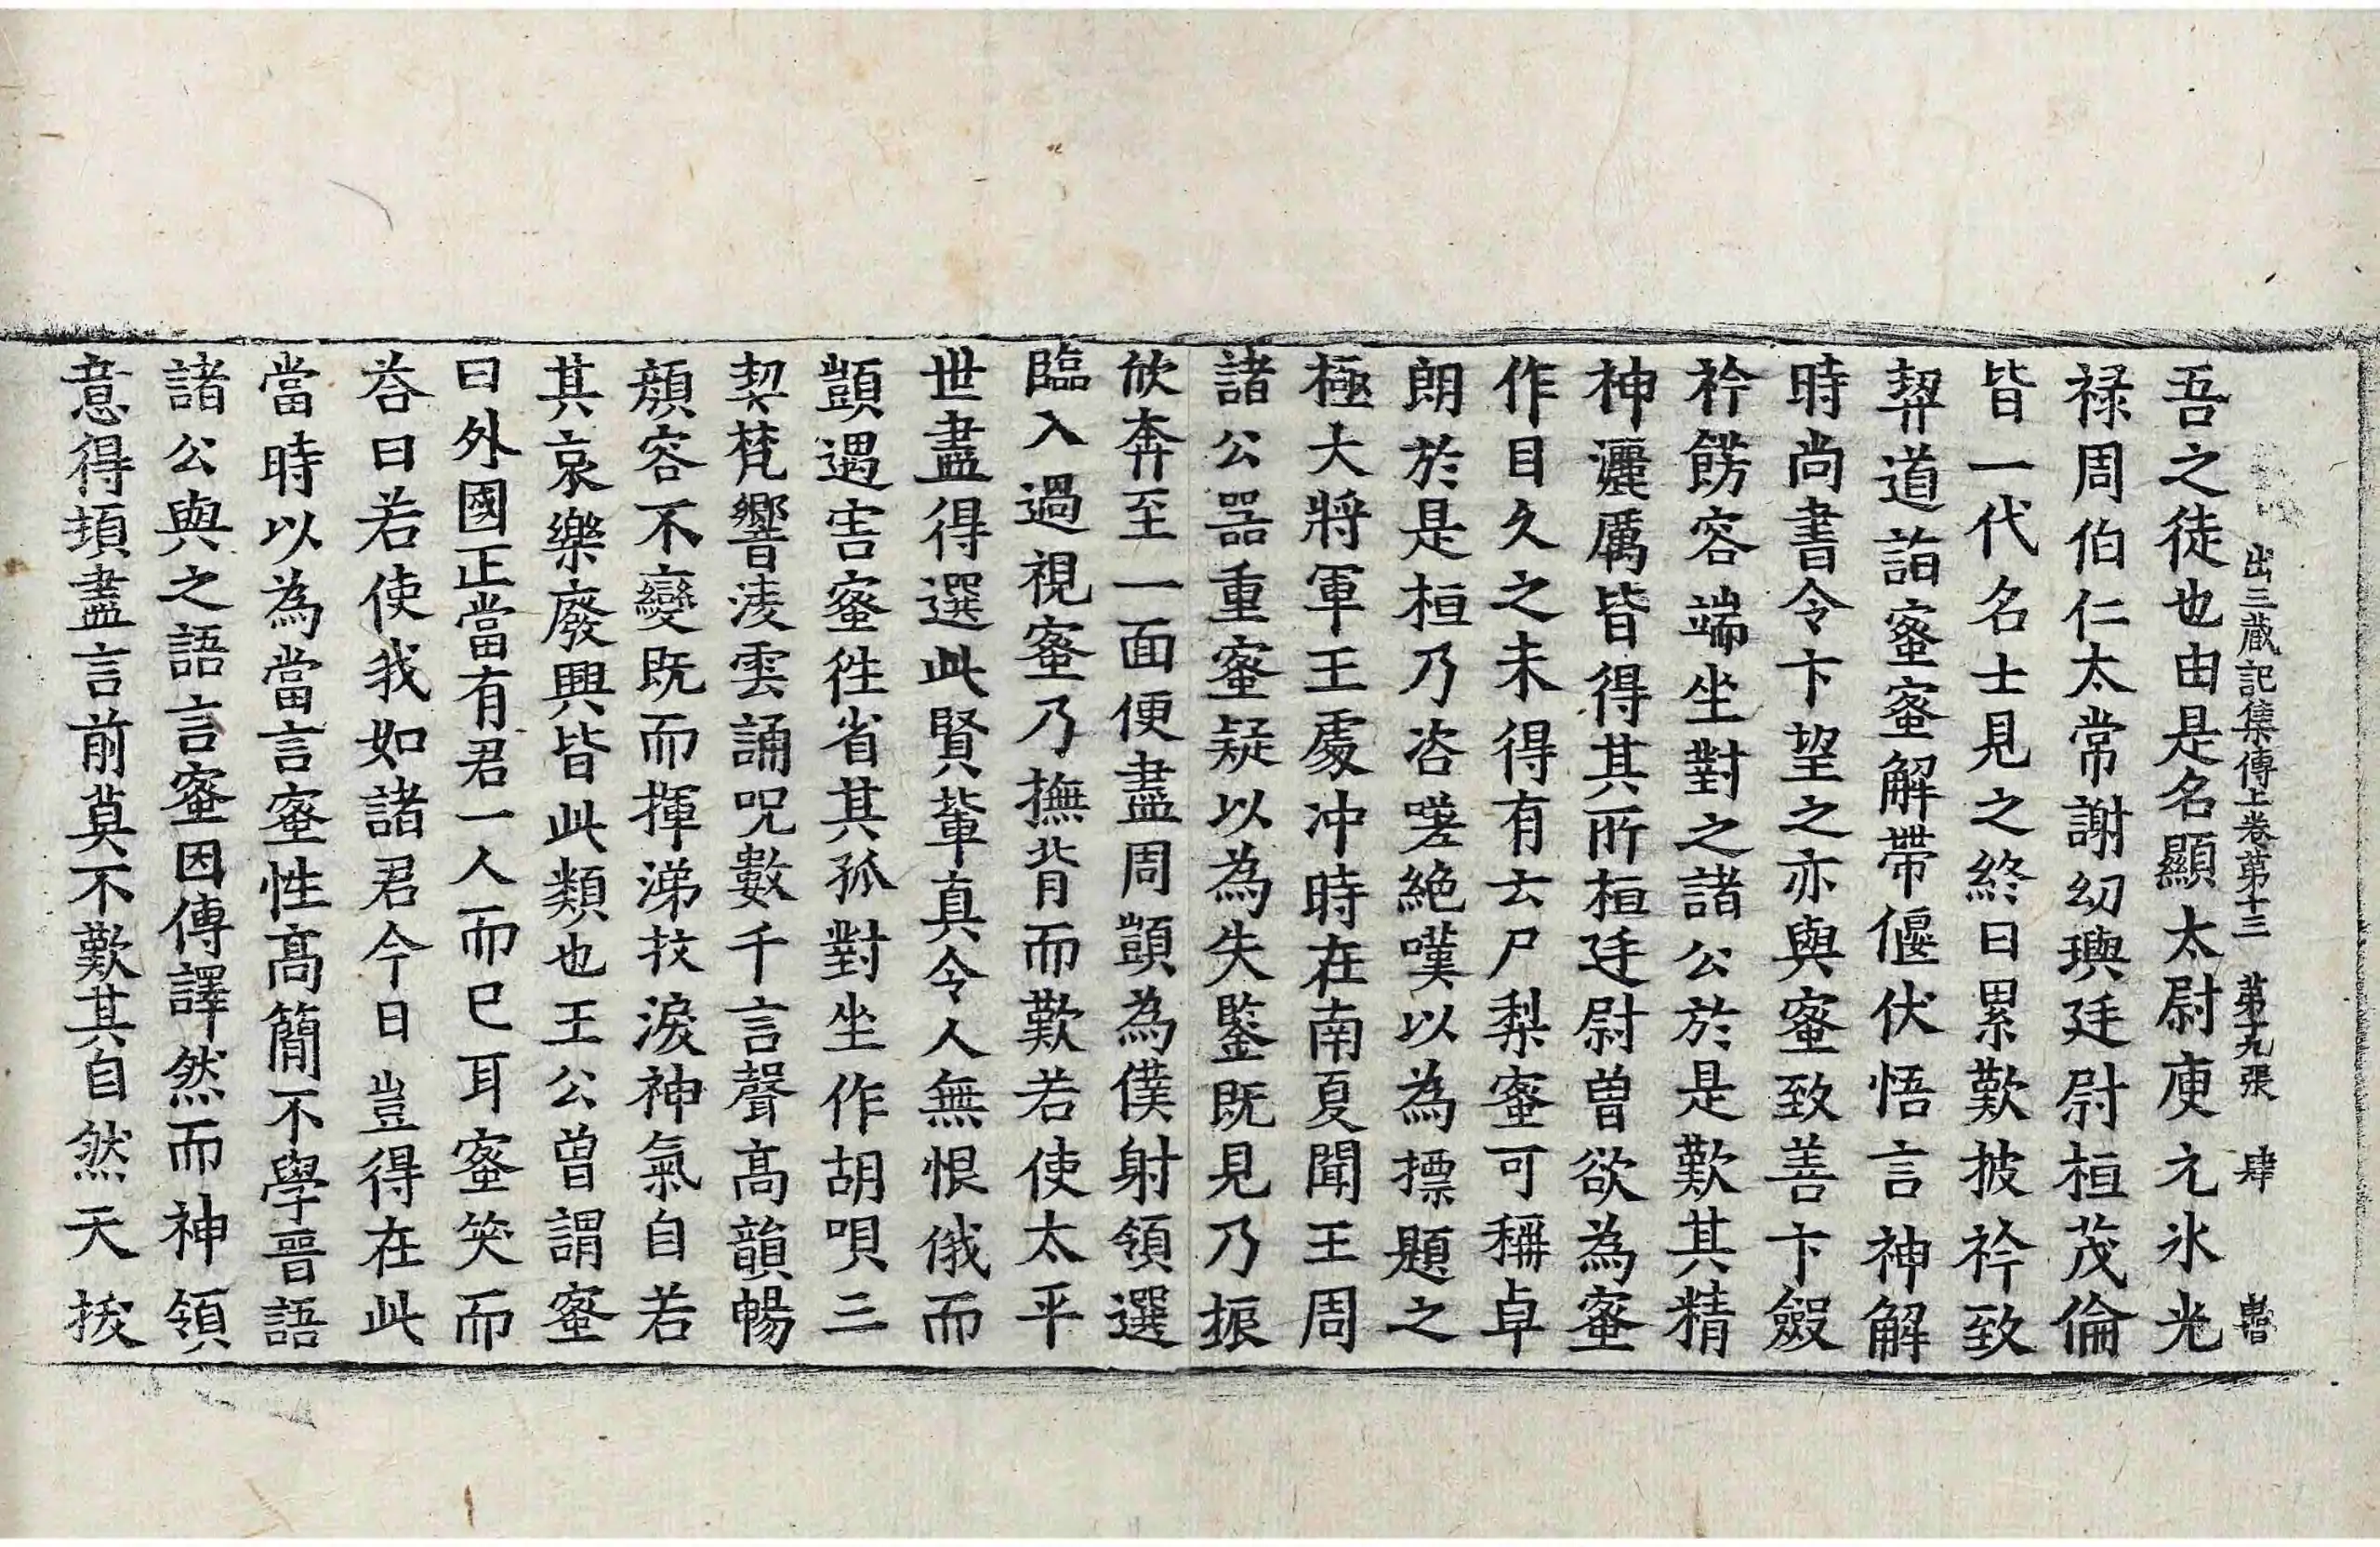 出三蔵記集傳上卷苐十三　苐十九張　肆
吾之徒也由是名顯太尉庾元氷光
禄周伯仁太常謝幼璵廷尉桓茂倫
皆一代名士見之終日累歎披衿致
契道詣蜜蜜解帶偃伏悟言神解
時尚書令卞望之亦與蜜致善卞斂
衿餝容端坐對之諸公於是歎其精
神灑厲皆得其所桓廷尉曽欲為蜜
作目久之未得有云尸梨蜜可稱卓
朗於是桓乃咨嗟絶嘆以為摽題之
極大將軍王處冲時在南夏聞王周
諸公器重蜜疑以為失鑒既見乃振
欣奔至一面便盡周顗為僕射領選
臨入過視蜜乃撫背而歎若使太平
世盡得選此賢軰真令人無恨俄而
顗遇害蜜徃省其孤對坐作胡唄三
契梵響淩雲誦呪數千言聲高韻暢
顔容不變既而揮涕抆淚神氣自若
其哀樂廢興皆此類也王公曽謂蜜
曰外國正當有君一人而已耳蜜笑而
荅曰若使我如諸君今日豈得在此
當時以為當言蜜性髙簡不學晉語
諸公與之語言蜜因傳譯然而神領
意得頃盡言前莫不歎其自然天拔